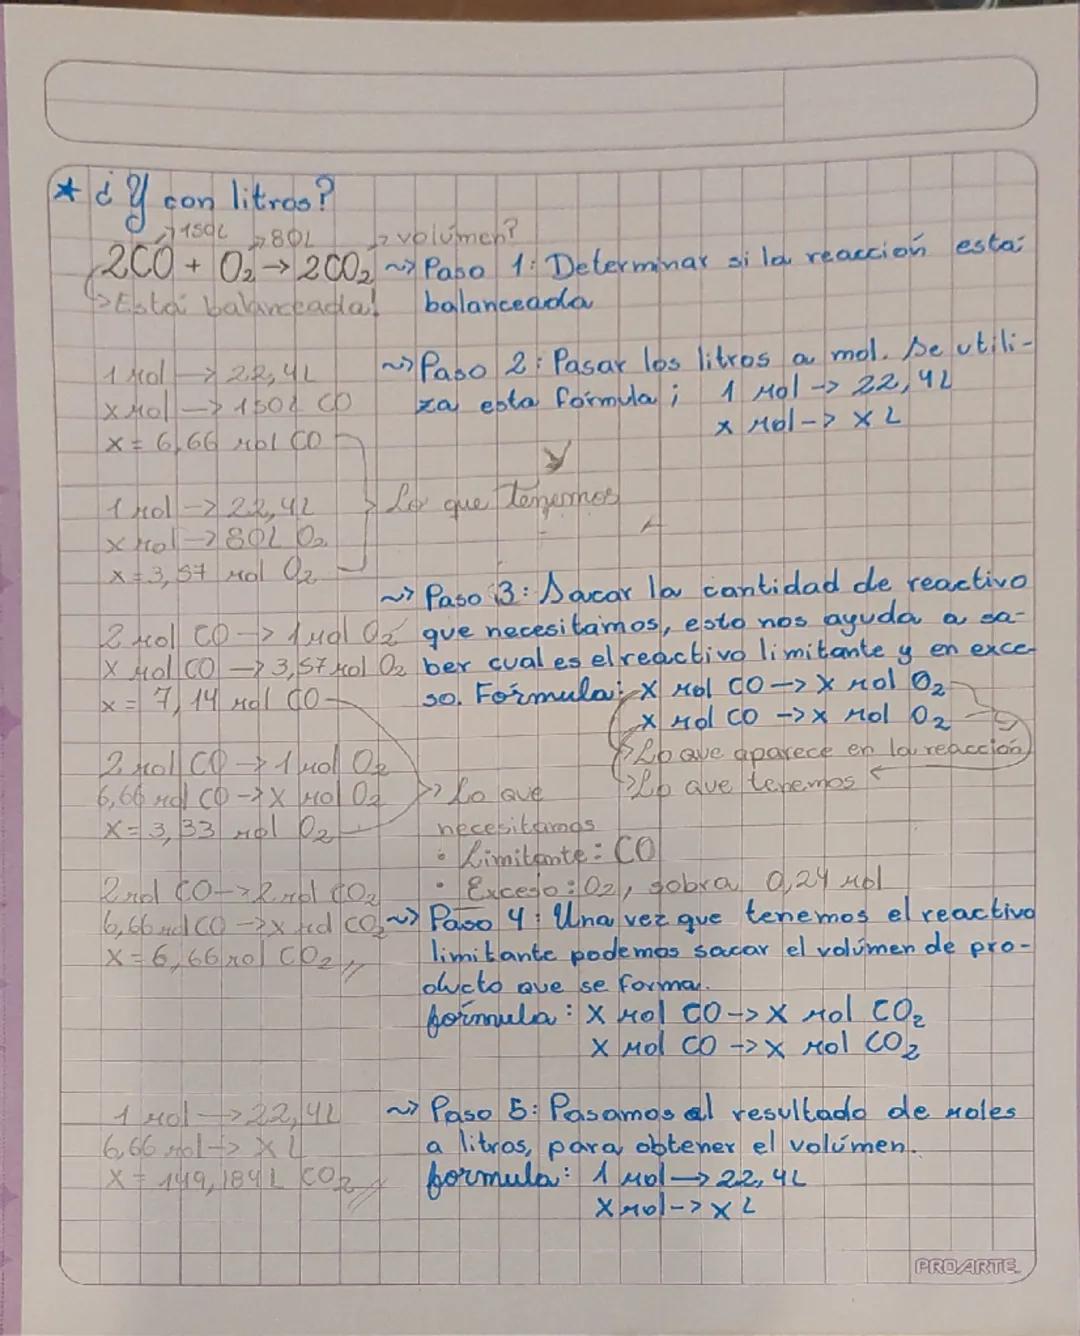 * ¿Y con litros?
→150L →80L → volúmen?
2CO + O₂ → 2CO₂ ~> Paso 1: Determinar si la reacción está
↳Está balanceada! balanceada
1 Mol → 22,4L ~> Paso 2: Pasar los litros a mol. Se utili-
x Mol → 150L CO za esta fórmula; 1 Mol -> 22,4L
x = 6,66 mol CO x Mol -> x L
y
1 mol -> 22,4L > Lo que tenemos
x Mol -> 80L O₂
x = 3,57 Mol O₂
~> Paso 3: Sacar la cantidad de reactivo
2 mol CO -> 1 mol O₂ que necesitamos, esto nos ayuda a sa-
x Mol CO -> 3,57 mol O₂ ber cual es el reactivo limitante y en exce-
x = 7,14 Mol CO so. Fórmula: x Mol CO -> x Mol O₂
x Mol CO -> x Mol O₂
↳Lo que aparece en la reacción
2 mol CO -> 1 mol O₂ ↳Lo que tenemos
6,66 mol CO -> x Mol O₂ > Lo que
x = 3,33 mol O₂ necesitamos
• Limitante: CO
2 mol CO -> 2 mol CO₂ • Exceso: O₂, sobra 0,24 mol
6,66 mol CO -> x mol CO₂ ~> Paso 4: Una vez que tenemos el reactivo
x = 6,66 mol CO₂ limitante podemos sacar el volúmen de pro-
ducto que se forma.
fórmula: x Mol CO -> x Mol CO₂
x Mol CO -> x Mol CO₂
1 Mol -> 22,4L ~> Paso 5: Pasamos el resultado de moles
6,66 mol -> x L a litros, para obtener el volúmen.
x = 149,184L CO₂ formula: 1 Mol -> 22,4L
x Mol -> x L
PROARTE